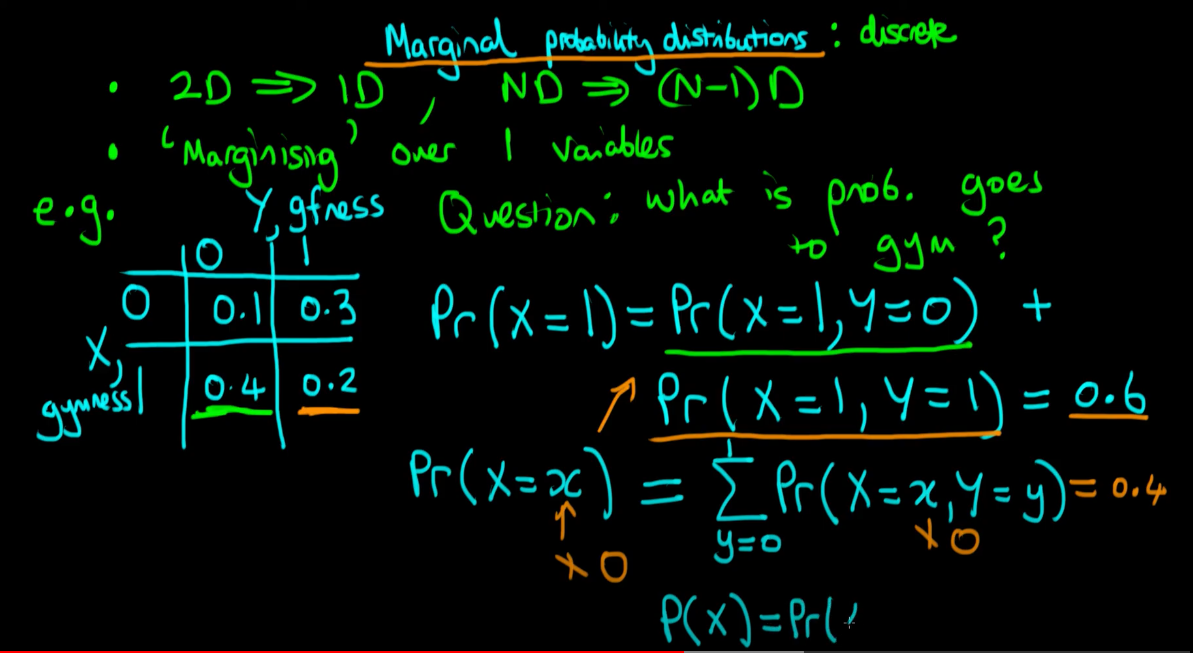 Marginal probability distributions : discrete
• 2D ⟹ 1D , ND ⟹ (N-1)D
• 'Marginising' over 1 variables
e.g.
Y, gfness
0 1
0 0.1 0.3
X,
gymness 1 0.4 0.2
Question: what is prob. goes
to gym ?
Pr(X=1) = Pr(X=1, Y=0) +
Pr(X=1, Y=1) = 0.6
Pr(X=x) = 1∑y=0 Pr(X=x, Y=y) = 0.4
↑ 0 0
P(X)=Pr(